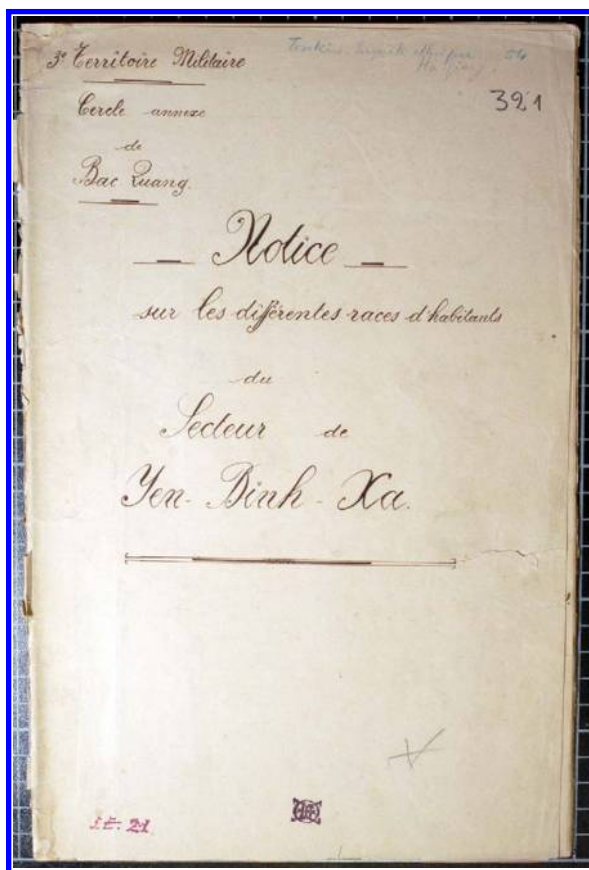 3e Territoire Militaire
Cercle annexe
de
Bac Quang.
Tonkin
54
Ha Giang
321
Notice
sur les différentes races d'habitants
du
Secteur de
Yen-Binh-Xa.